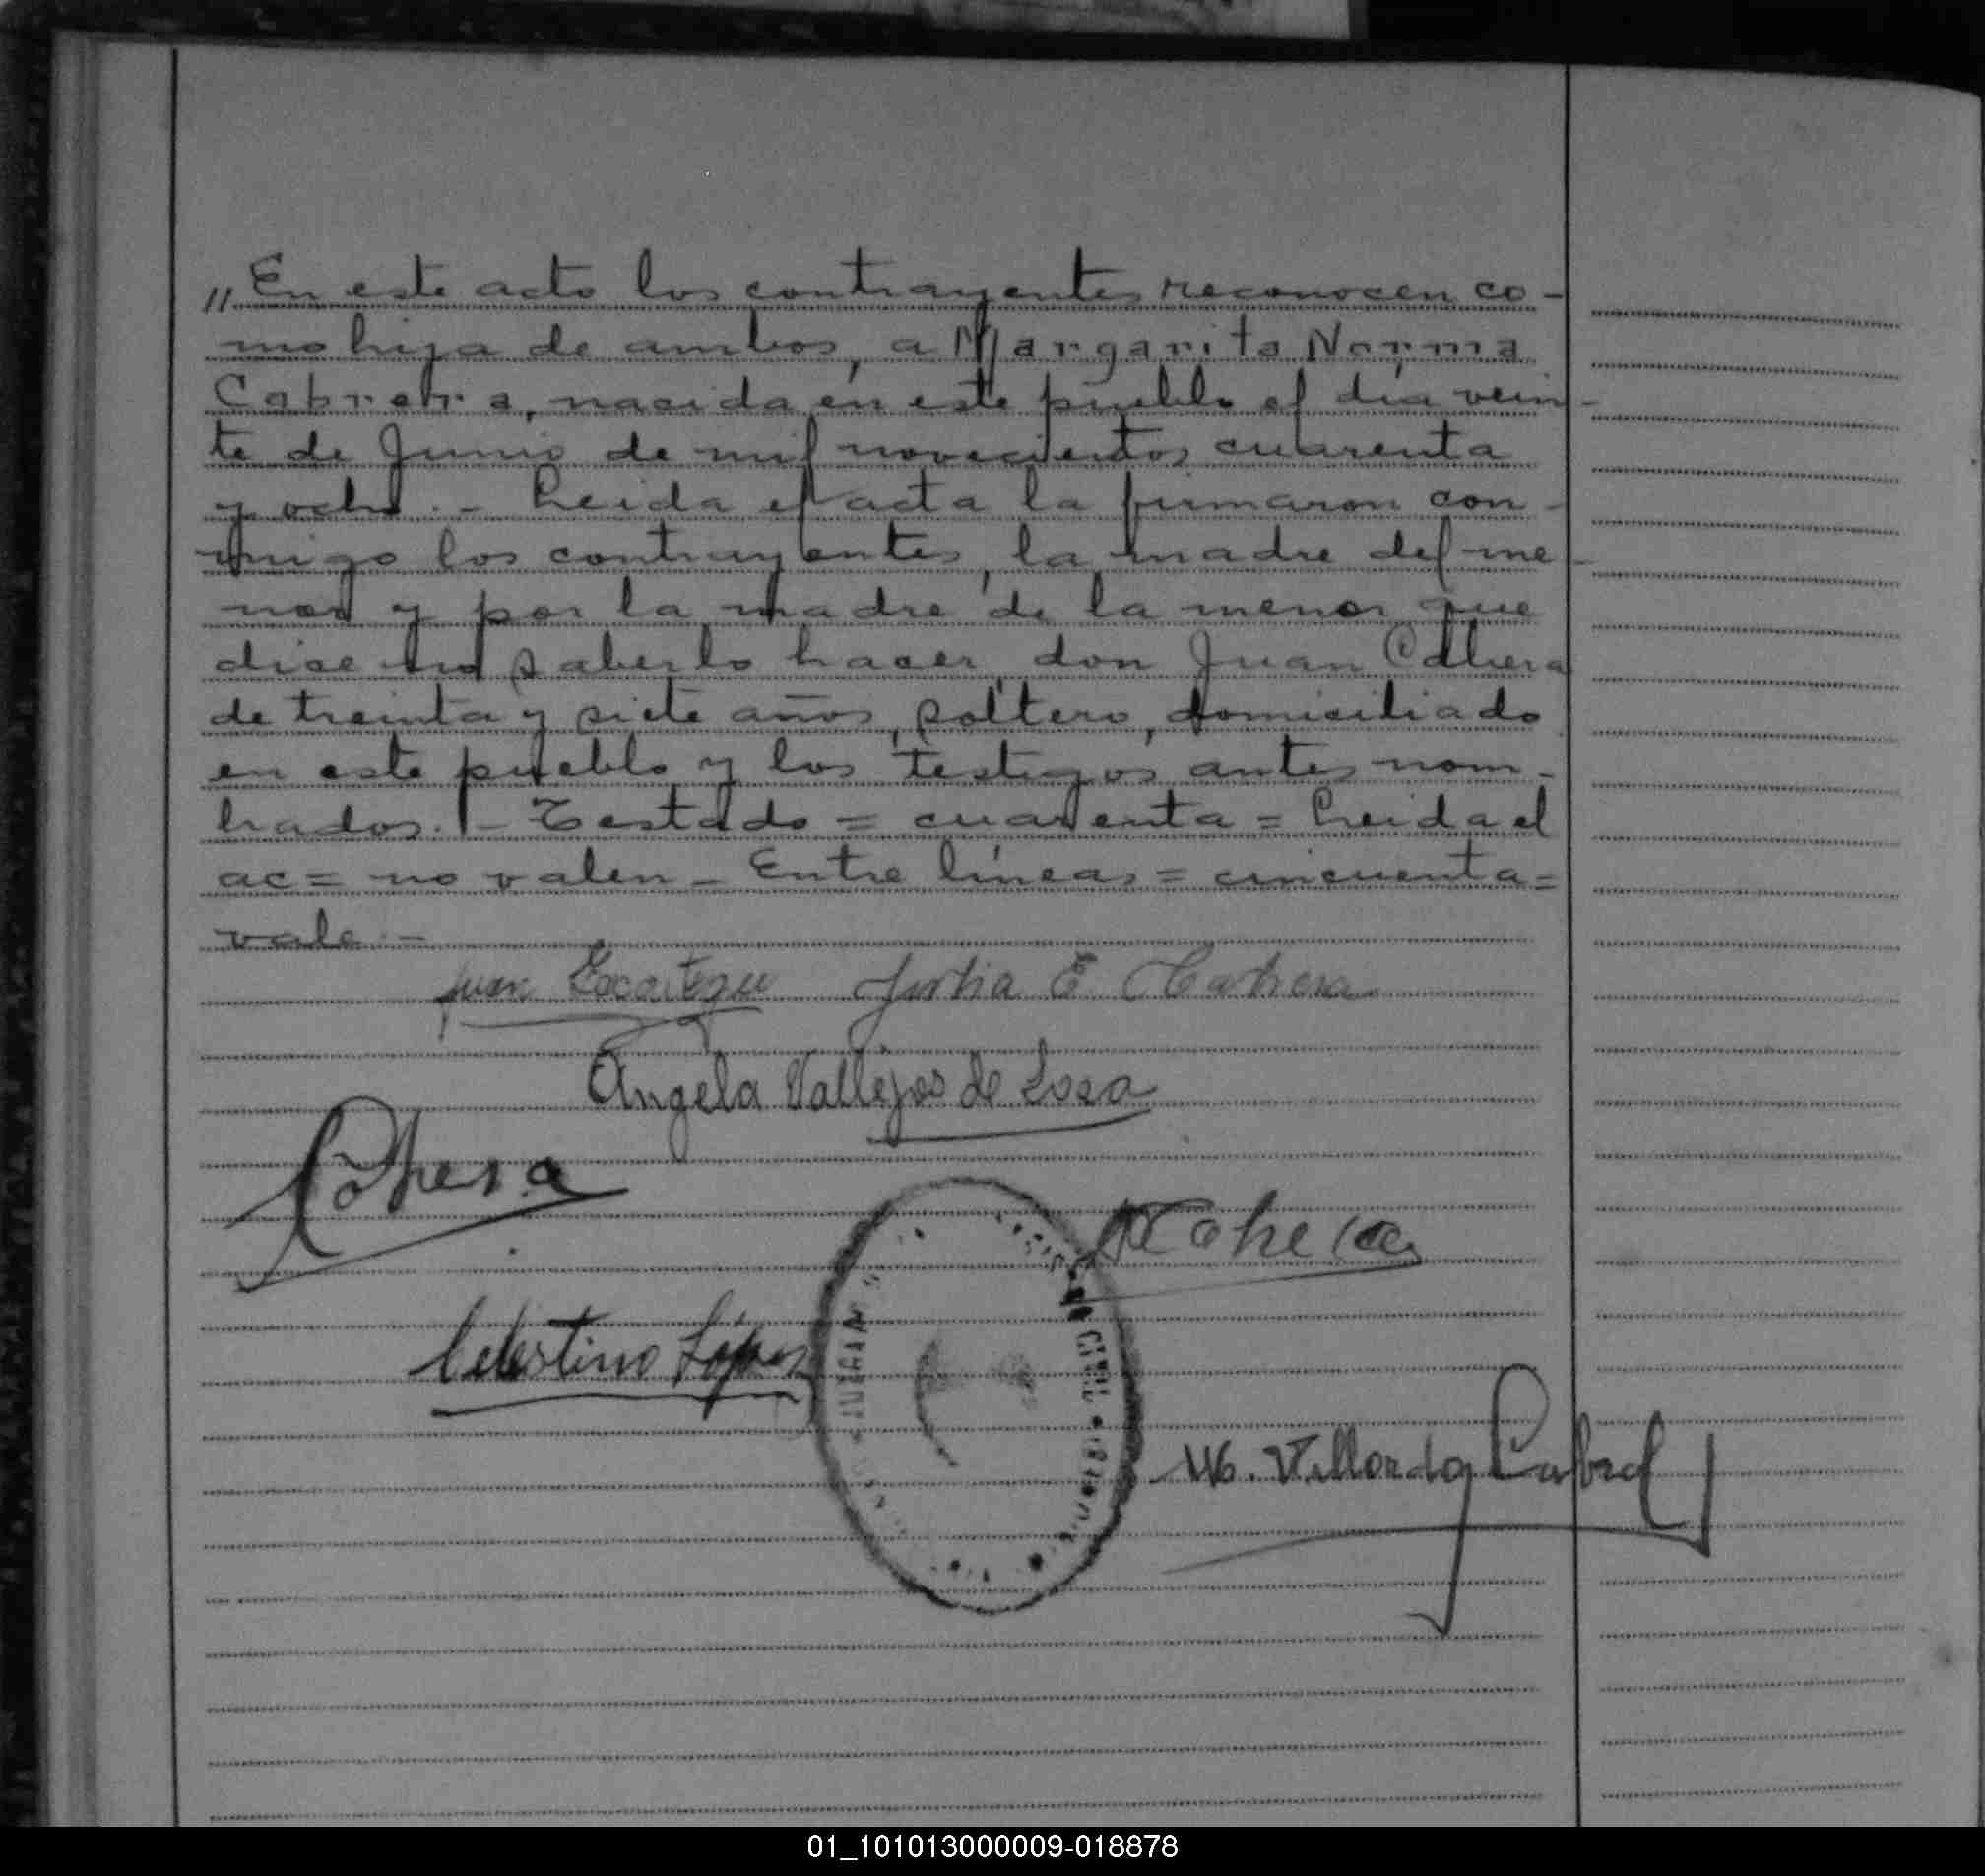 "En este acto los contrayentes reconocen co-
mo hija de ambos, a Margarita Norma
Cabrera, nacida en este pueblo el día vein-
te de Junio de mil novecientos cuarenta
y ocho.- Leida el acta la firmaron con-
migo los contrayentes, la madre del me-
nor y por la madre de la menor que
dice no saberlo hacer, don Juan Cabrera
de treinta y siete años, soltero, domiciliado
en este pueblo y los testigos antes nom-
brados.- Testado = cuarenta = Leida el
ac = no valen - Entre líneas = cincuenta =
vale.-
Juan E. Cabrera
Angela Vallejos de Sosa
Cabrera
Cabrera
Celestino López
CIVIL
Villordo Cabral
01_101013000009-018878